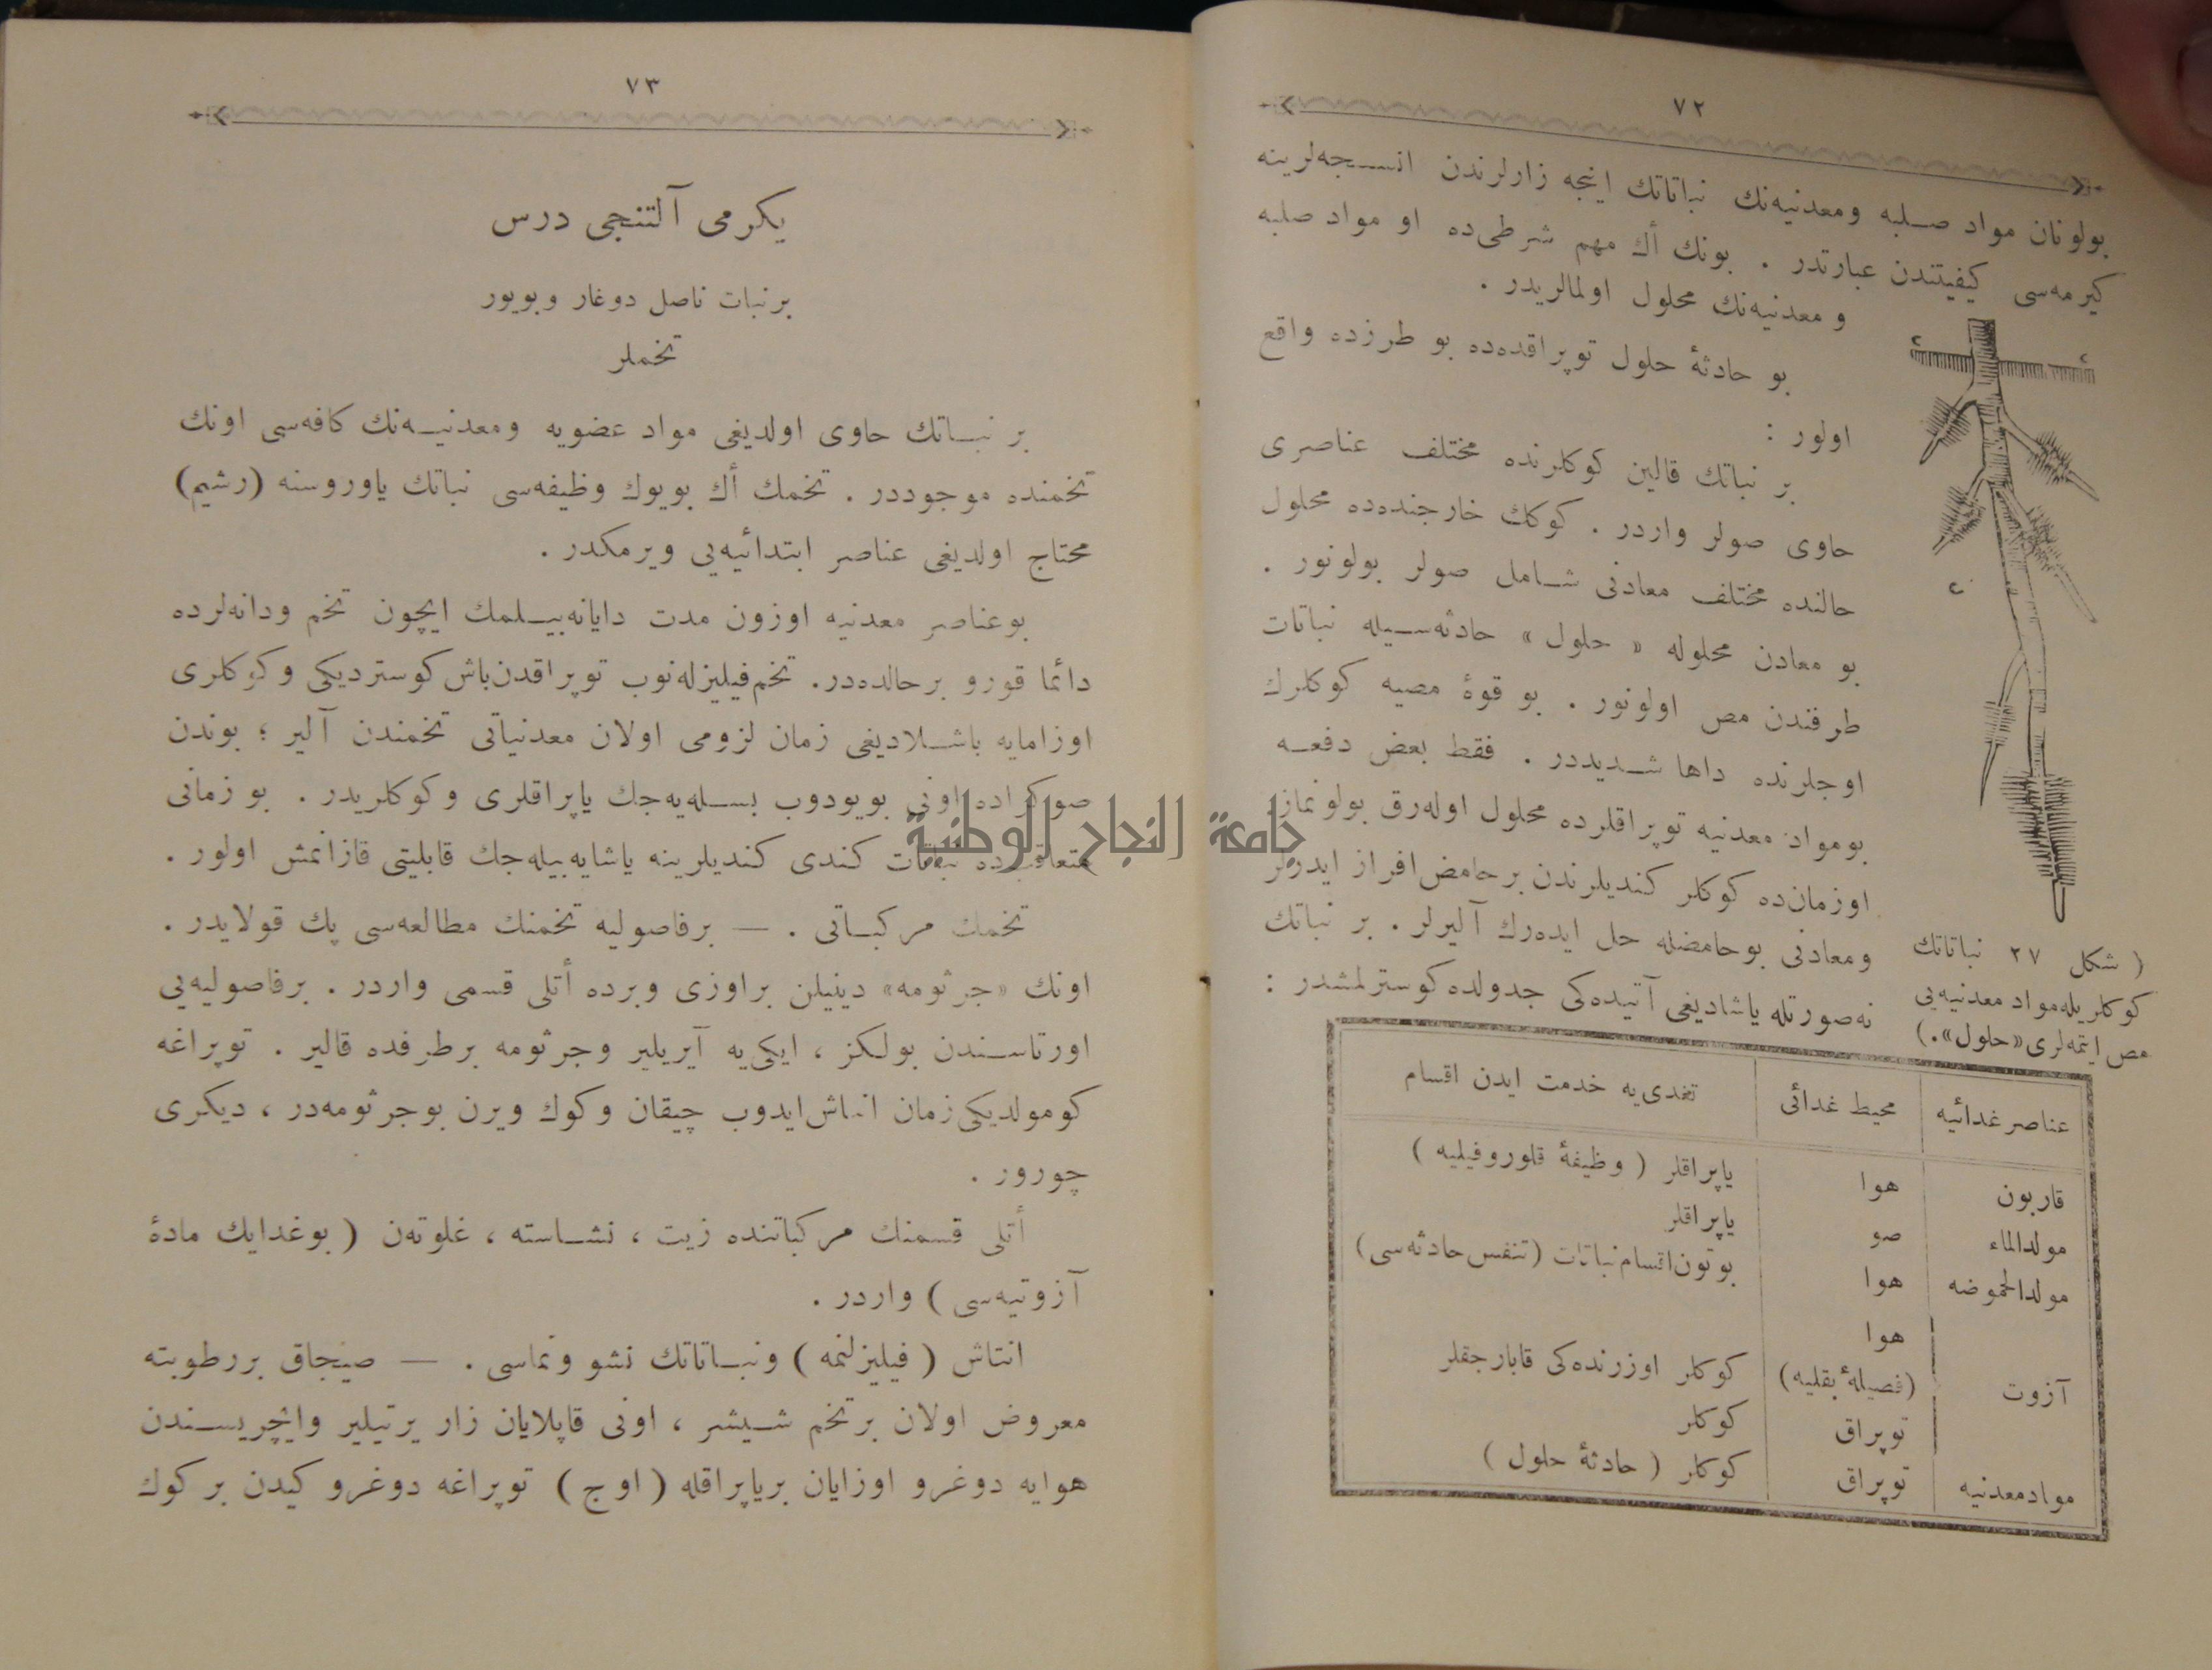 ٧٢
بولونان مواد صلبه ومعدنیه‌نك نباتاتك اینجه زارلرندن انسجه‌لرینه
كیرمه‌سی كیفیتندن عبارتدر . بونك أك مهم شرطی‌ده او مواد صلبه
و معدنیه‌نك محلول اولمالریدر .
بو حادثهٔ حلول توپراقده‌ده بو طرزده واقع
اولور :
بر نباتك قالین كوكلرنده مختلف عناصری
حاوی صولر واردر . كوكك خارجنده‌ده محلول
حالنده مختلف معادنی شامل صولر بولونور .
بو معادن محلوله « حلول » حادثه‌سیله نباتات
طرفندن مص اولونور . بو قوهٔ مصیه كوكلرك
اوجلرنده داها شدیددر . فقط بعض دفعه
بومواد معدنیه توپراقلرده محلول اوله‌رق بولونماز
اوزمان‌ده كوكلر كندیلرندن برحامض افراز ایدرلر
ومعادنی بوحامضله حل ایده‌رك آلیرلر . بر نباتك
نه‌صورتله یاشادیغی آتیده‌كی جدولده كوسترلمشدر :
( شكل ٢٧ نباتاتك
كوكلریله مواد معدنیه‌یی
مص ایتمه‌لری «حلول».)
عناصر غدائیه محیط غدائی تغدی‌یه خدمت ایدن اقسام
قاربون هوا یاپراقلر ( وظیفهٔ قلوروفیلیه )
مولدالماء صو یاپراقلر
مولدالحموضه هوا بوتون اقسام نباتات (تنفس حادثه‌سی)
هوا
آزوت (فصیلهٔ بقلیه) كوكلر اوزرنده‌كی قابارجقلر
توپراق كوكلر
موادمعدنیه توپراق كوكلر ( حادثهٔ حلول )
٧٣
یكرمی آلتنجی درس
برنبات ناصل دوغار وبویور
تخملر
بر نباتك حاوی اولدیغی مواد عضویه ومعدنیه‌نك كافه‌سی اونك
تخمنده موجوددر . تخمك أك بویوك وظیفه‌سی نباتك یاوروسنه (رشیم)
محتاج اولدیغی عناصر ابتدائیه‌یی ویرمكدر .
بوعناصر معدنیه اوزون مدت دایانه‌بیلمك ایچون تخم ودانه‌لرده
دائما قورو برحالده‌در. تخم فیلیزله‌نوب توپراقدن باش كوستردیكی وكوكلری
اوزامایه باشلادیغی زمان لزومی اولان معدنیاتی تخمندن آلیر ؛ بوندن
صوكراده اونی بویودوب بسله‌یه‌جك یاپراقلری وكوكلریدر . بو زمانی
متعاقبده نباتات كندی كندیلرینه یاشایه‌بیله‌جك قابلیتی قازانمش اولور .
جامعة النجاح الوطنية
تخمك مركباتی . — برفاصولیه تخمنك مطالعه‌سی پك قولایدر .
اونك «جرثومه» دینیلن براوزی وبرده أتلی قسمی واردر . برفاصولیه‌یی
اورتاسندن بولكز ، ایكی‌یه آیریلیر وجرثومه برطرفده قالیر . توپراغه
كومولدیكی زمان انتاش ایدوب چیقان وكوك ویرن بوجرثومه‌در ، دیكری
چورور .
أتلی قسمنك مركباتنده زیت ، نشاسته ، غلوته‌ن ( بوغدایك مادهٔ
آزوتیه‌سی ) واردر .
انتاش ( فیلیزلنمه ) ونباتاتك نشو ونماسی . — صیجاق بررطوبته
معروض اولان برتخم شیشر ، اونی قاپلایان زار یرتیلیر وایچریسندن
هوایه دوغرو اوزایان برياپراقله ( اوج ) توپراغه دوغرو كیدن بر كوك